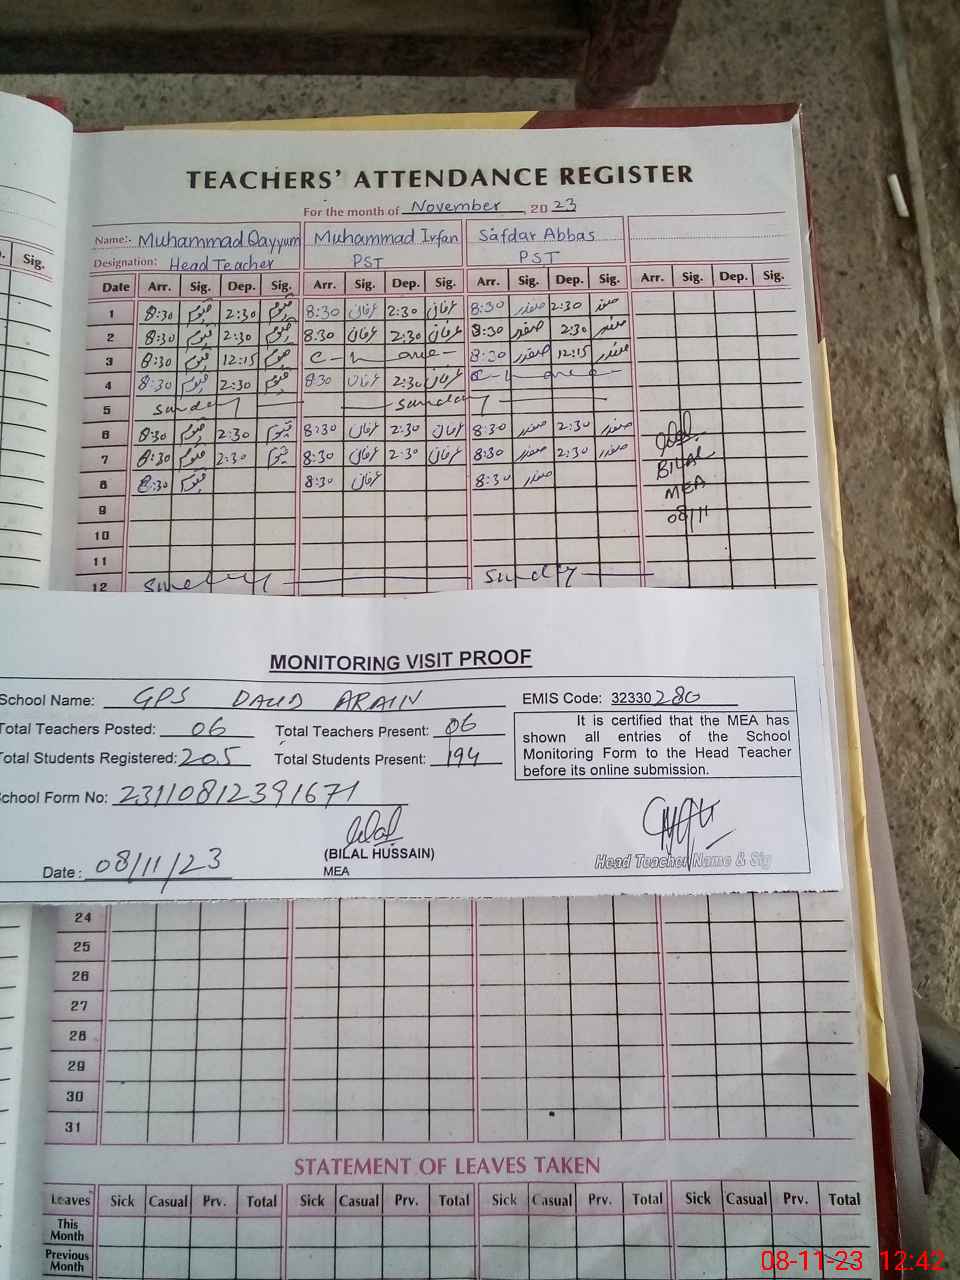 TEACHERS' ATTENDANCE REGISTER
For the month of November, 2023
Name:- Muhammad Qayyum Muhammad Irfan Safdar Abbas
Designation: Head Teacher PST PST
Sig.
Date Arr. Sig. Dep. Sig. Arr. Sig. Dep. Sig. Arr. Sig. Dep. Sig. Arr. Sig. Dep. Sig.
1 8:30 قیوم 2:30 قیوم 8:30 عرفان 2:30 عرفان 8:30 صفدر 2:30 صفدر
2 8:30 قیوم 2:30 قیوم 8:30 عرفان 2:30 عرفان 8:30 صفدر 2:30 صفدر
3 8:30 قیوم 12:15 قیوم 8:30 صفدر 12:15 صفدر
4 8:30 قیوم 2:30 قیوم 8:30 عرفان 2:30 عرفان
5 Sunday Sunday
6 8:30 قیوم 2:30 قیوم 8:30 عرفان 2:30 عرفان 8:30 صفدر 2:30 صفدر
7 8:30 قیوم 2:30 قیوم 8:30 عرفان 2:30 عرفان 8:30 صفدر 2:30 صفدر
BILAL
8 8:30 قیوم 8:30 عرفان 8:30 صفدر
MEA
9
08/11
10
11
12 Sunday Sunday
MONITORING VISIT PROOF
School Name: GPS DAUD ARAIN EMIS Code: 32330280
Total Teachers Posted: 06 Total Teachers Present: 06
Total Students Registered: 205 Total Students Present: 194
It is certified that the MEA has
shown all entries of the School
Monitoring Form to the Head Teacher
before its online submission.
School Form No: 23110812391671
(BILAL HUSSAIN)
MEA
Head Teacher Name & Sig
Date: 08/11/23
24
25
26
27
28
29
30
31
STATEMENT OF LEAVES TAKEN
Leaves Sick Casual Prv. Total Sick Casual Prv. Total Sick Casual Prv. Total Sick Casual Prv. Total
This Month
Previous Month
08-11-23 12:42